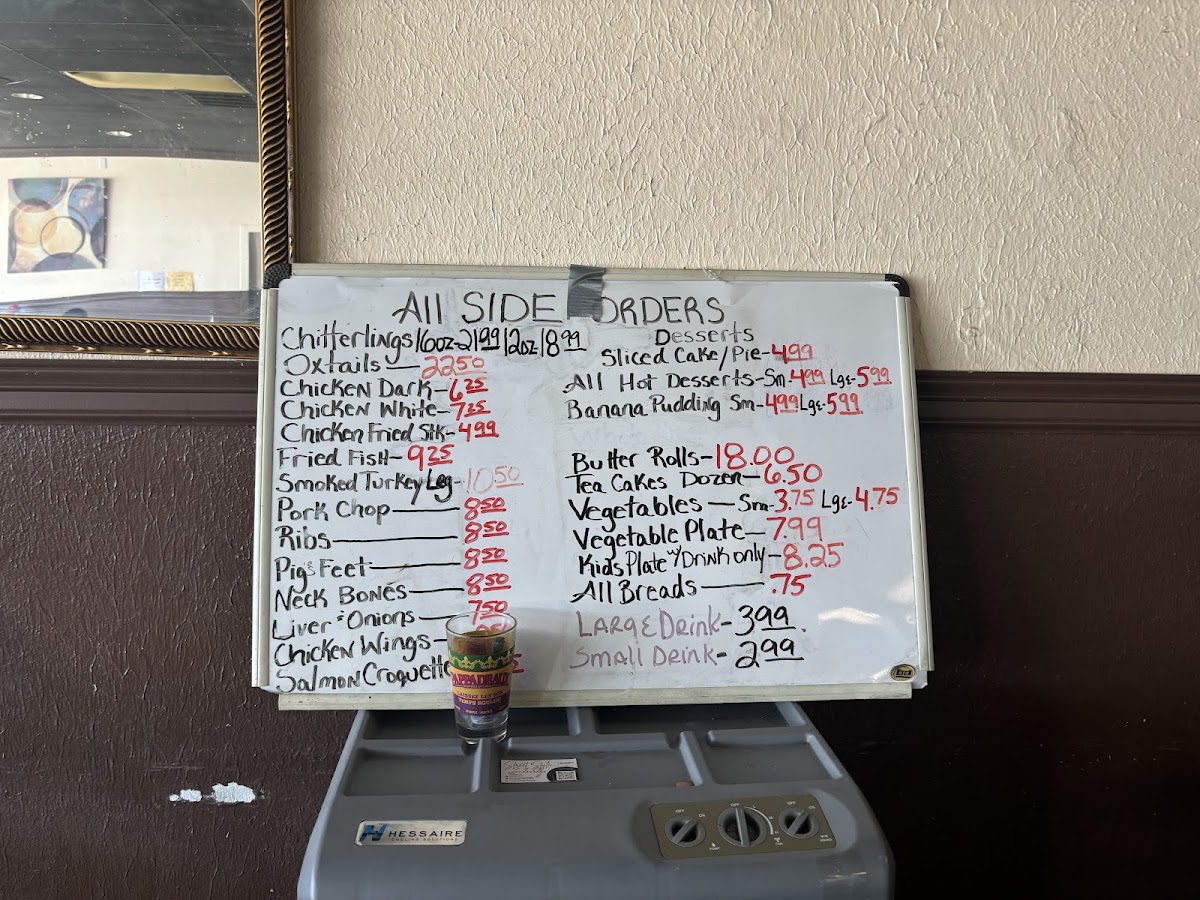 All SIDE ORDERS
Chitterlings 16oz-21.99 12oz-18.99
Oxtails — 22.50
Chicken Dark - 6.25
Chicken White - 7.25
Chicken Fried Stk - 4.99
Fried Fish - 9.25
Smoked Turkey Leg - 10.50
Pork Chop — 8.50
Ribs — 8.50
Pig's Feet — 8.50
Neck Bones — 8.50
Liver & Onions — 7.50
Chicken Wings -
Salmon Croquette
Desserts
Sliced Cake/Pie - 4.99
All Hot Desserts - Sm - 4.99 Lge - 5.99
Banana Pudding Sm - 4.99 Lge - 5.99
Butter Rolls - 18.00
Tea Cakes Dozen — 6.50
Vegetables — Sm - 3.75 Lge - 4.75
Vegetable Plate — 7.99
Kids Plate w/ Drink only - 8.25
All Breads — .75
LARGE Drink - 3.99
Small Drink - 2.99
PAPPADEAUX
HESSAIRE
COOLING SOLUTIONS
OFF
ON
OFF
OFF
ON